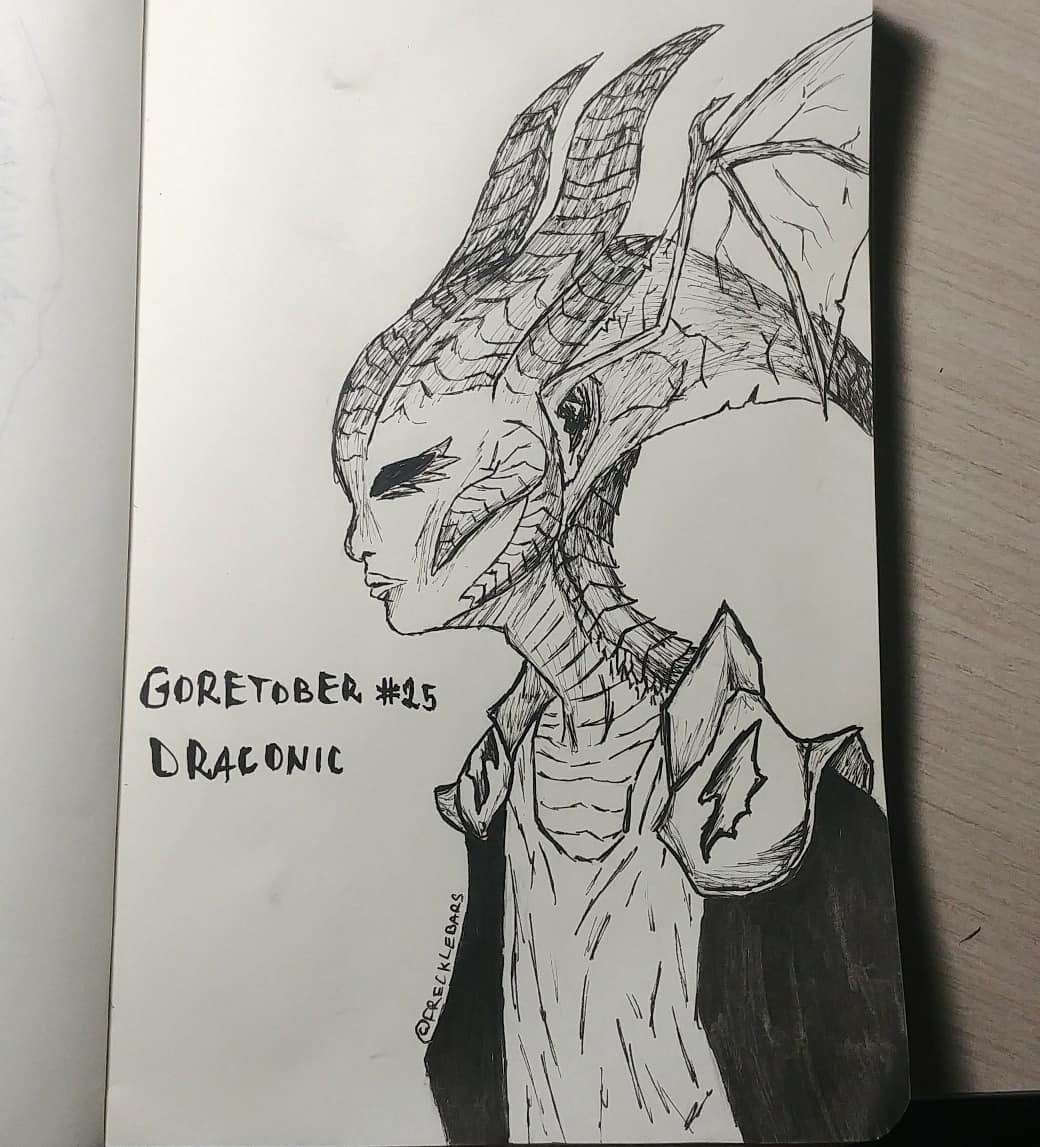 GORETOBER #25
DRACONIC
@FRECKLEBARS